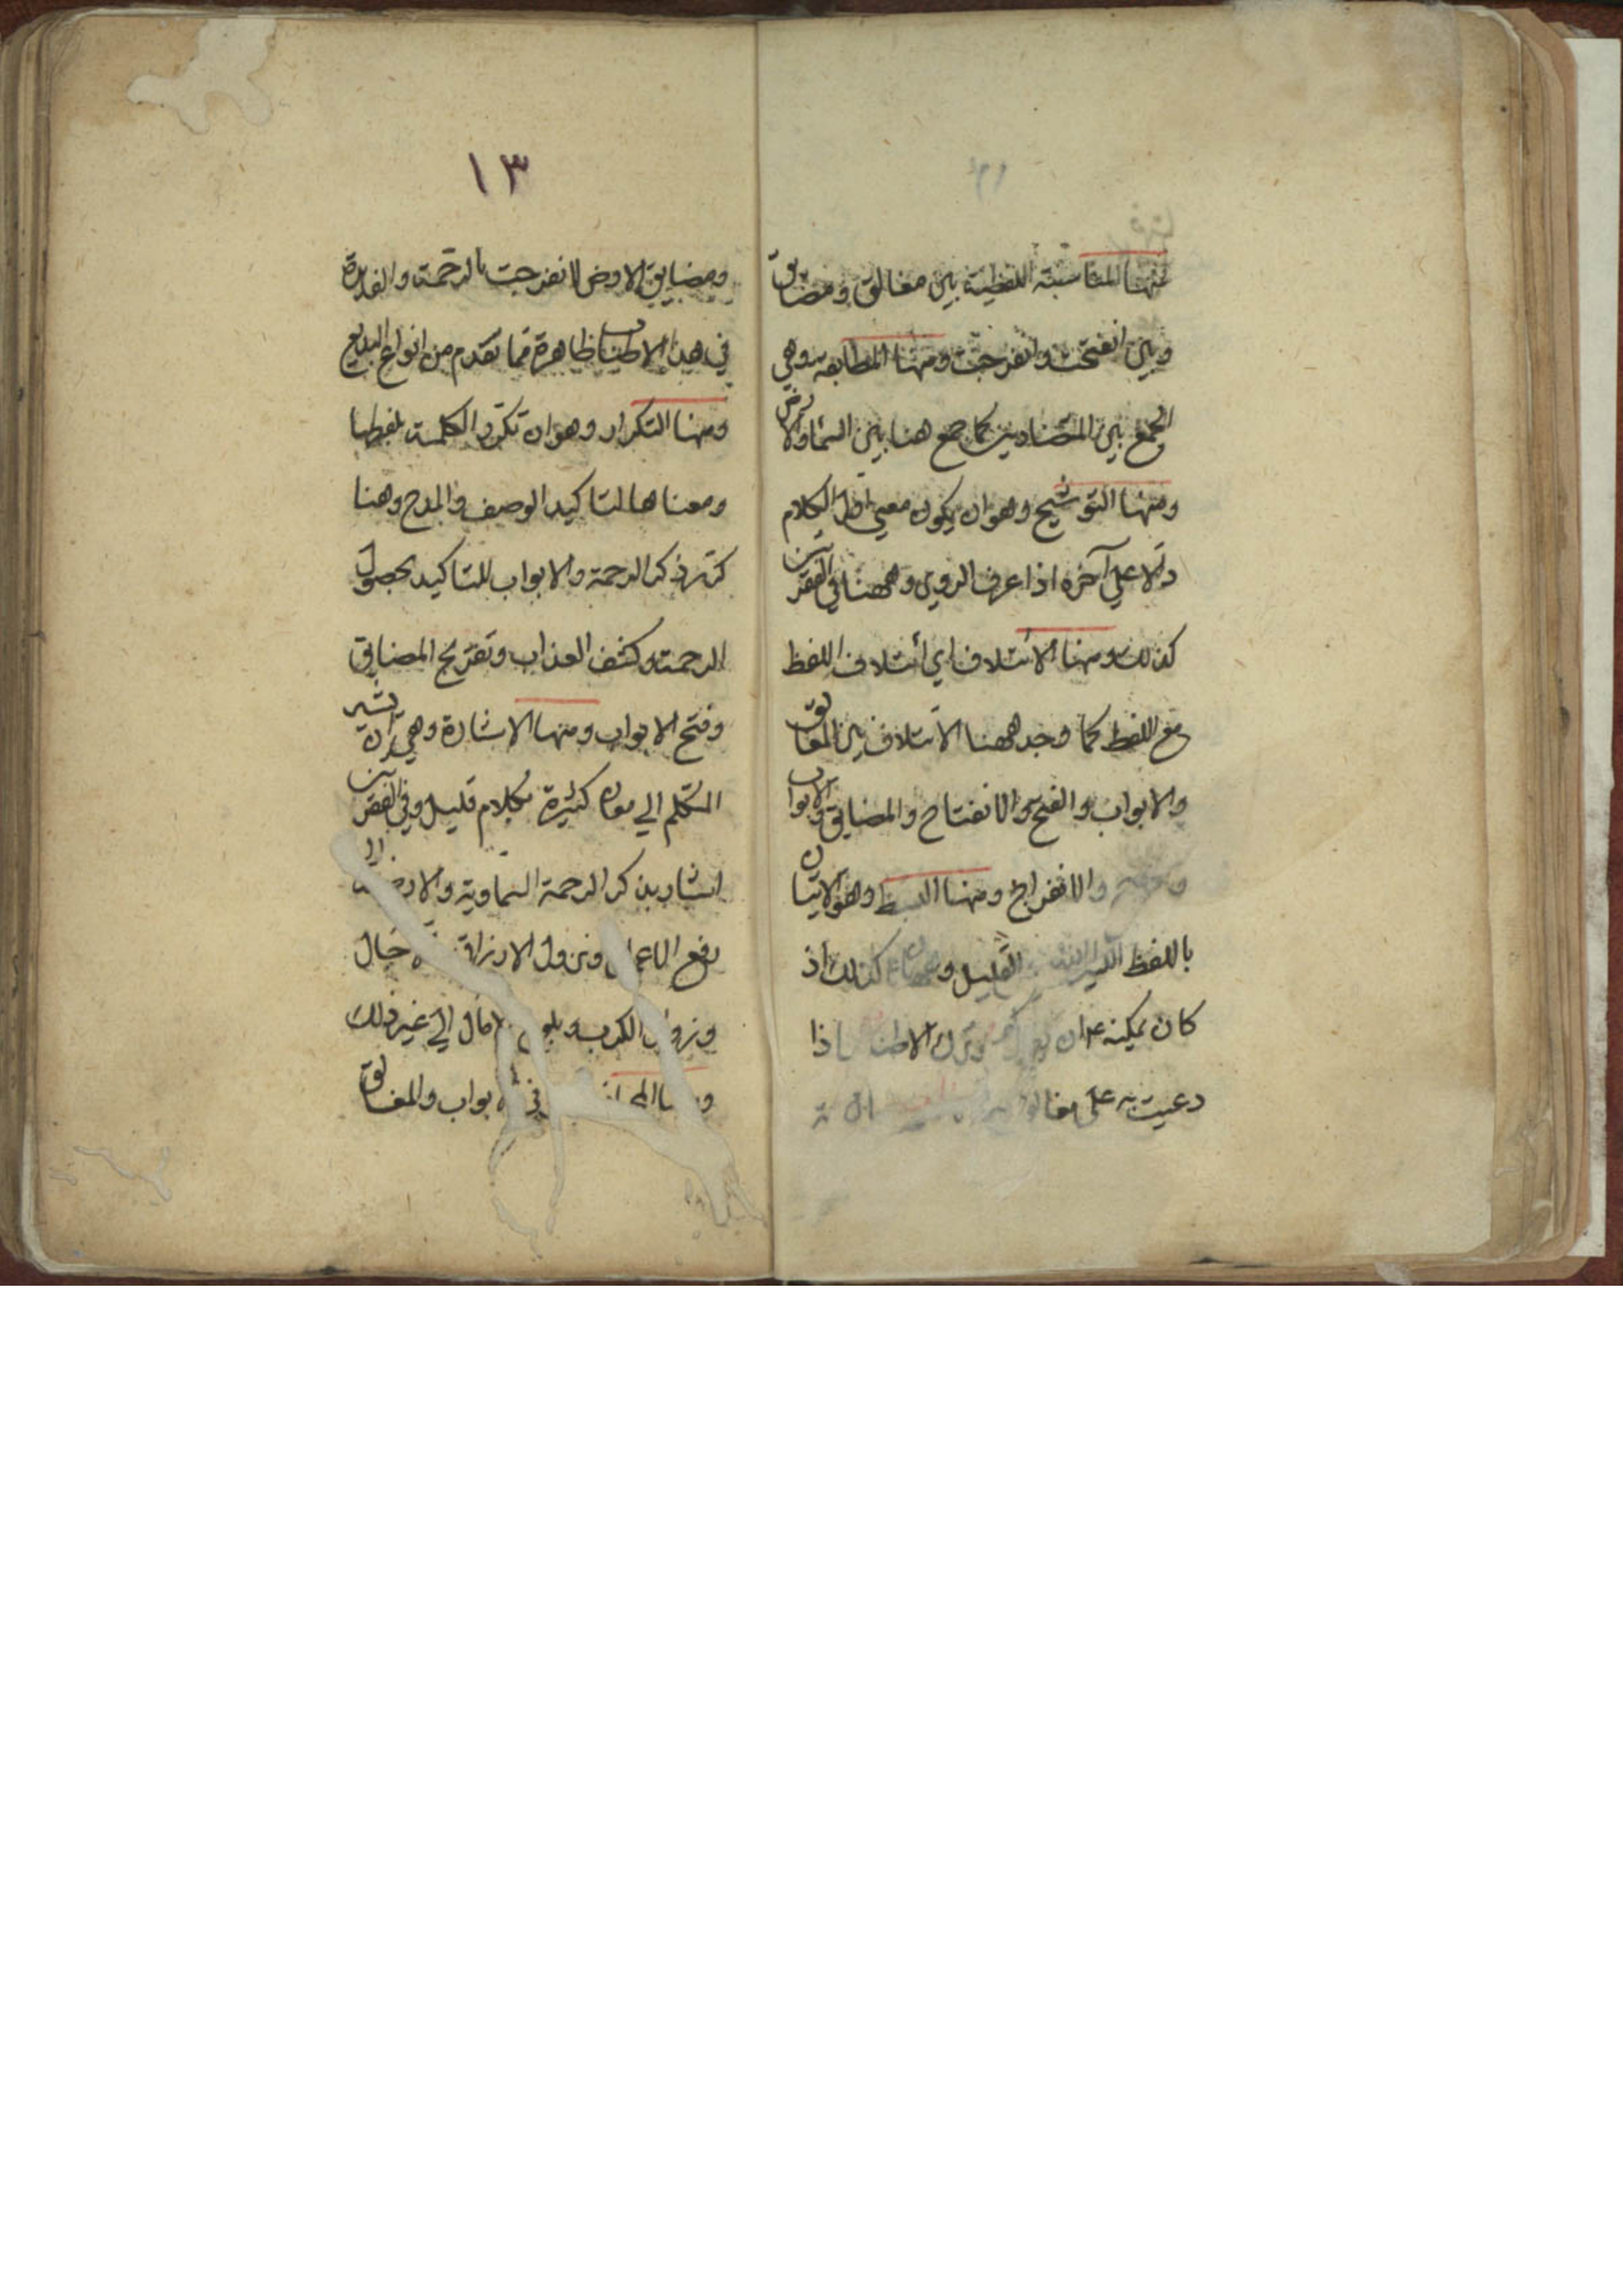 فمنها المناسبة اللفظية بين مغالق ومضايق
وبين انفتحت وانفرجت ومنها المطابقه وهي
الجمع بين المتضادين كما جمع هنا بين السماء والارض
ومنها التوشيح وهو ان يكون معني اول الكلام
دالا علي آخره اذا عرف الروي وههنا في الفقرتين
كذلك ومنها الائتلاف اي ائتلاف اللفظ
مع اللفظ كما وجد ههنا الائتلاف بين المغالق
والابواب والفتح والانفتاح والمضايق والابواب
والانفراج ومنها البسط وهو الاتيان
باللفظ الكثير القليل كذلك اذ
كان يمكنه ان وترك الاطناب اذا
دعيت به علي مغالق
١٣
ومضايق الارض لانفرجت بالرحمة والقدرة
في هذا الاطناب ظاهرة مما تقدم من انواع البديع
ومنها التكرار وهو ان تكرر الكلمة بلفظها
ومعناها لتاكيد الوصف والمدح وهنا
كرر ذكر الرحمة والابواب للتاكيد بحصول
الرحمة وكشف العذاب وتفريج المضايق
وفتح الابواب ومنها الاشارة وهي ان يشير
المتكلم الي معان كثيرة بكلام قليل وفي الفقرتين
اشار بذكر الرحمة السماوية والارضية الي
رفع الاعمال ونزول الارزاق حال
وزوال الكرب وبلوغ الامال الي غير ذلك
ومنها في الابواب والمغالق